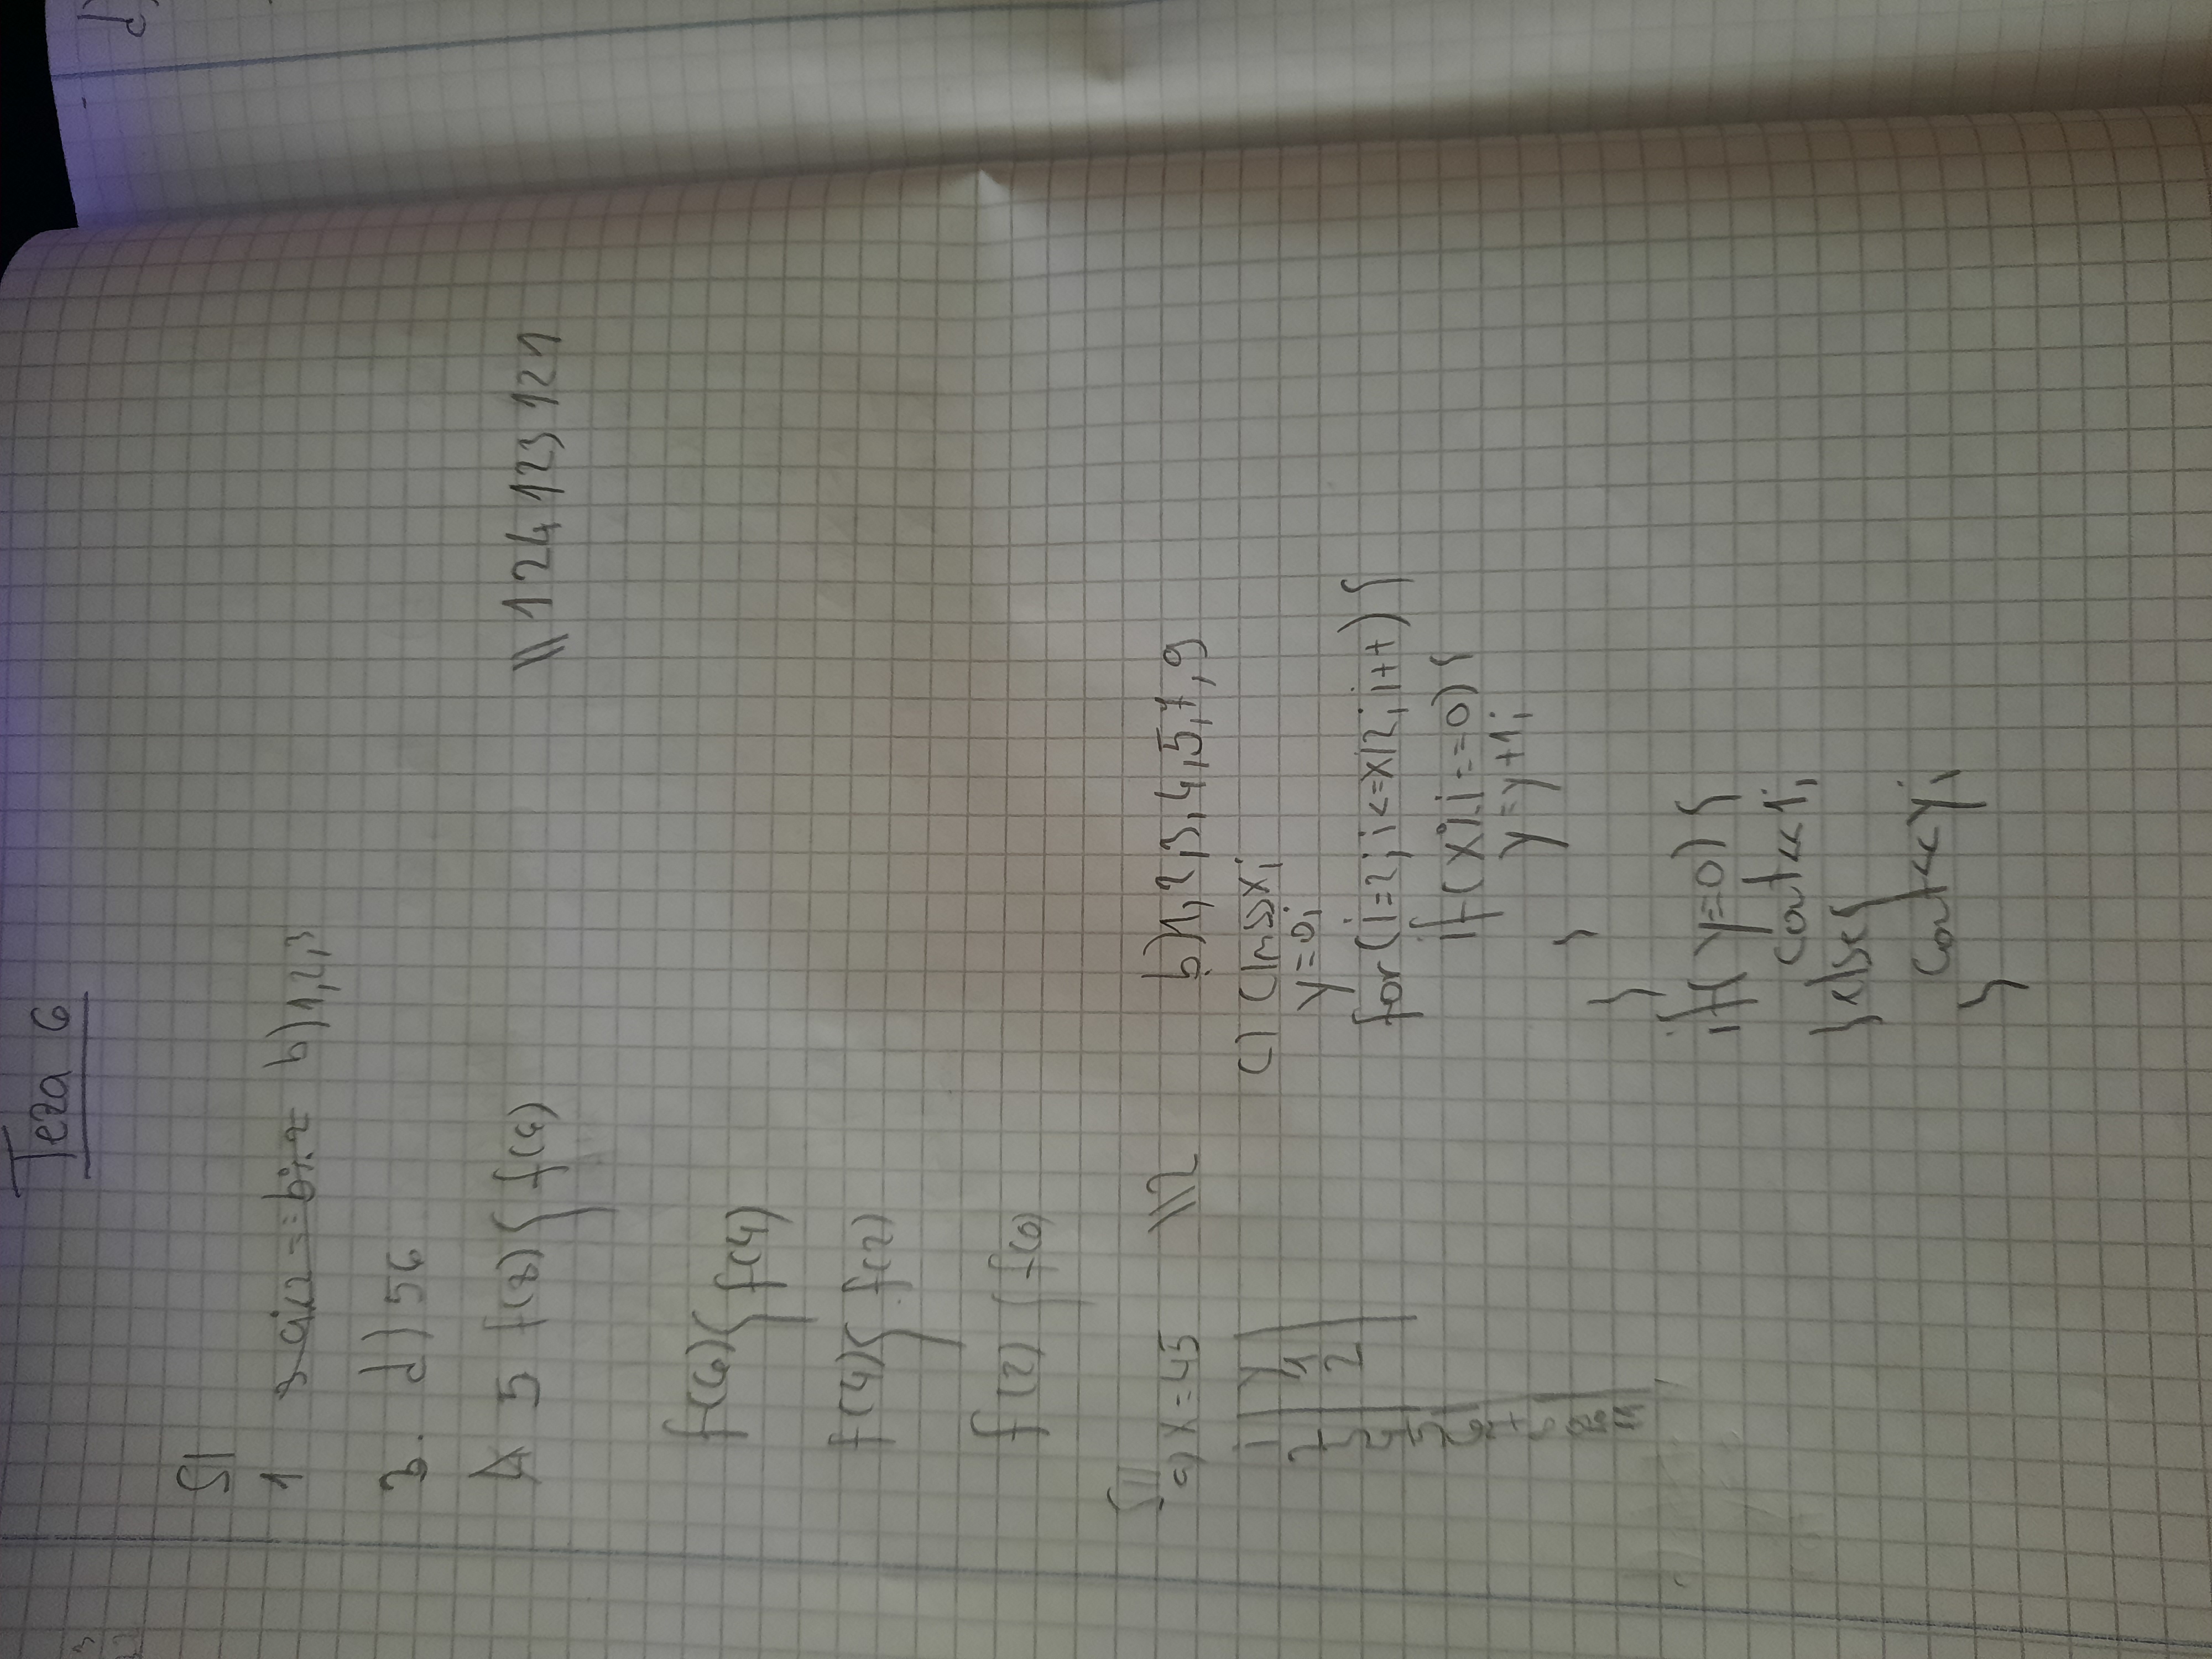 Teza 6
SI
1 3 a%2==b%2 b) 1,2,3
3. d) 56
5 f(8){ f(6) \\ 124 123 121
f(6){ f(4)
f(4){ f(2)
f(2) { f(0)
SII
a) x=45 \\2 b) 1,2,3,4,5,7,9
i y
2
2
c) cin>>x;
y=0;
for(i=2; i<=x/2; i++) {
if(x%i==0) {
y=y+1;
}
}
if( y=0) {
cout<<1;
}else{
cout<<y;
}
d)